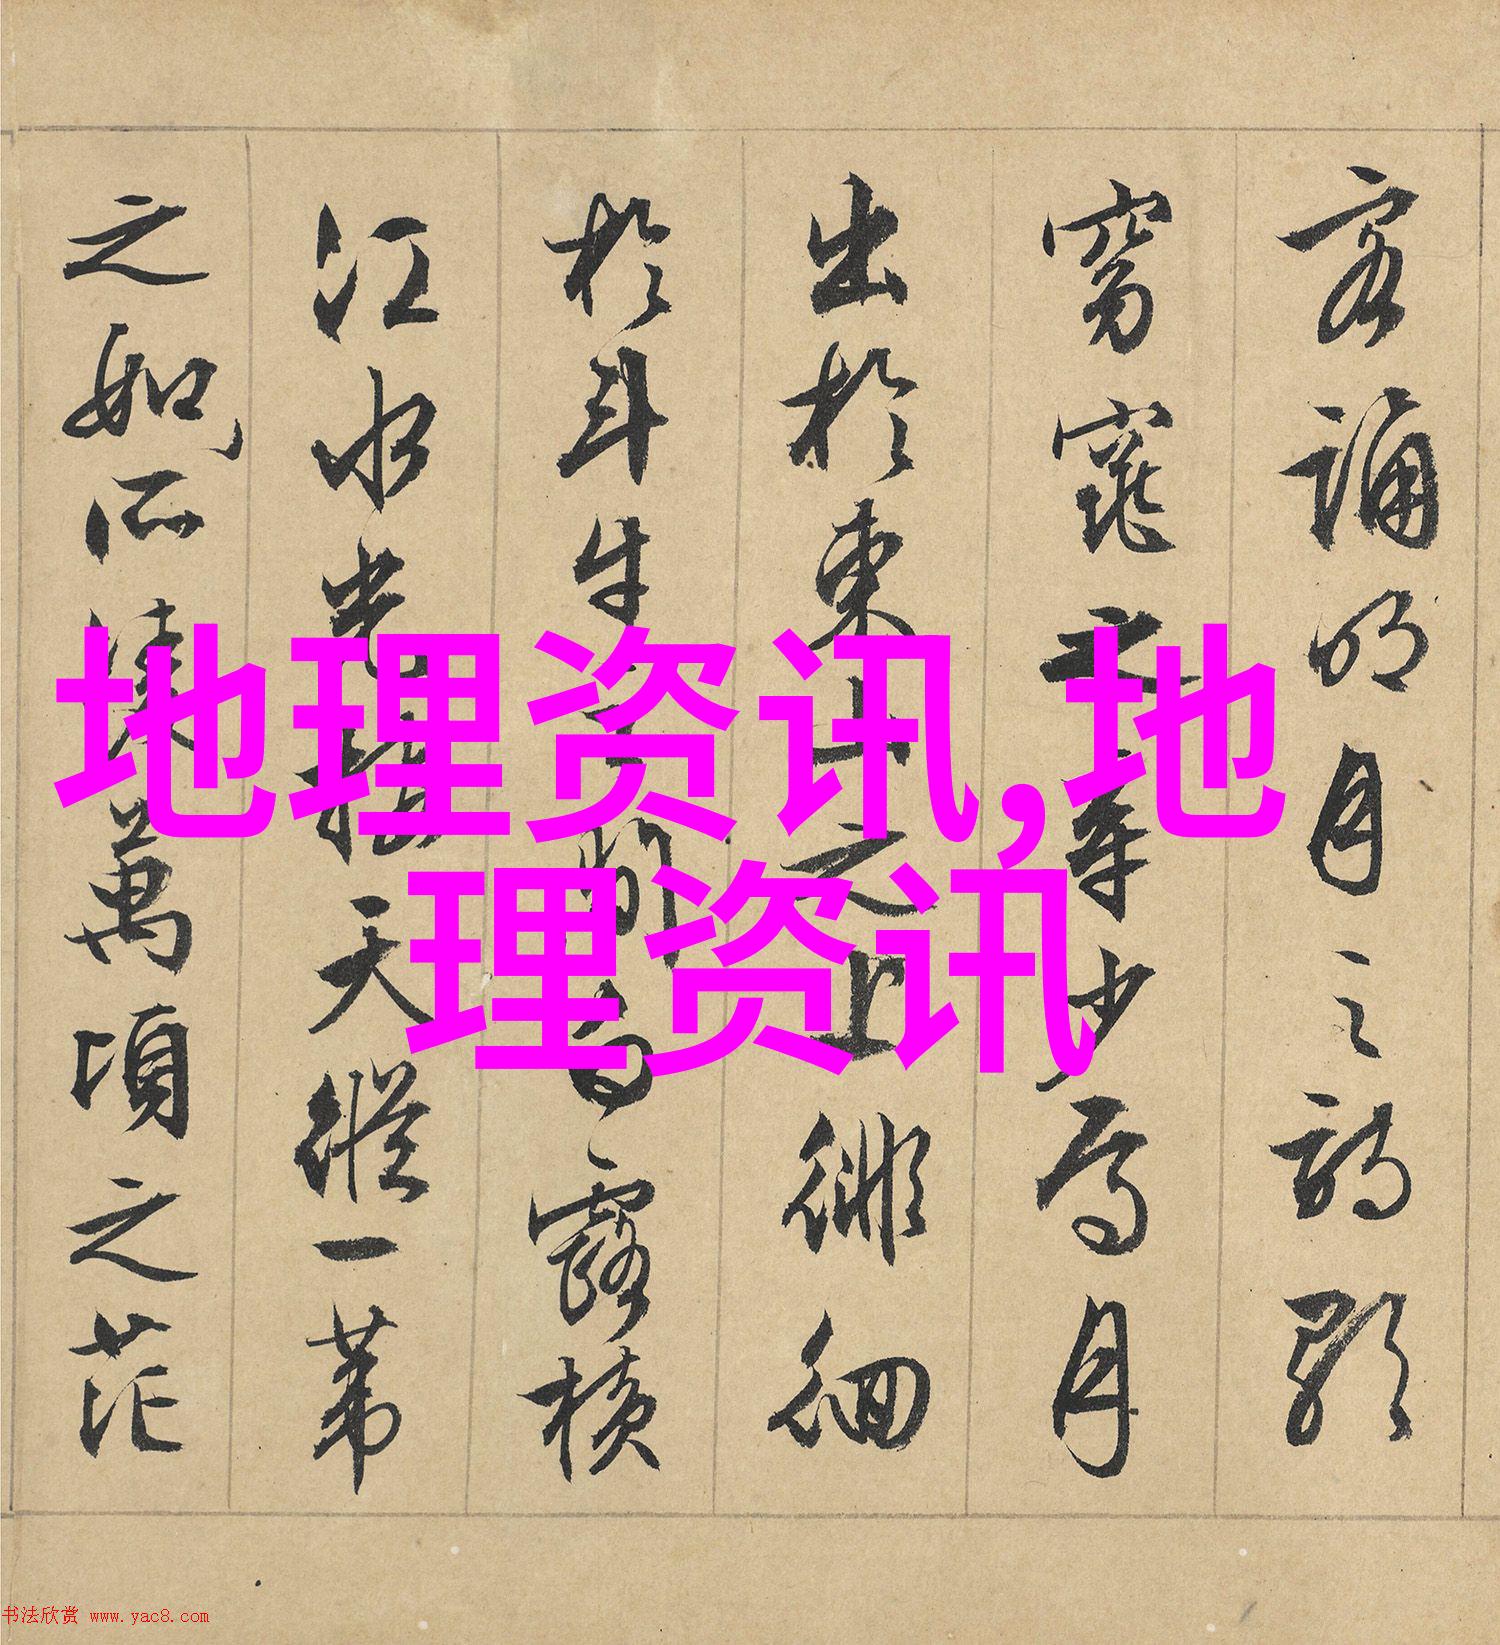 客誦明月之詩歌
窈窕之章少焉月
出於東山之上徘徊
於斗牛之間白露橫
江水光接天縱一葦
之如所凌萬頃之茫
地理资讯,地
理资讯
书法欣赏 www.yac8.com